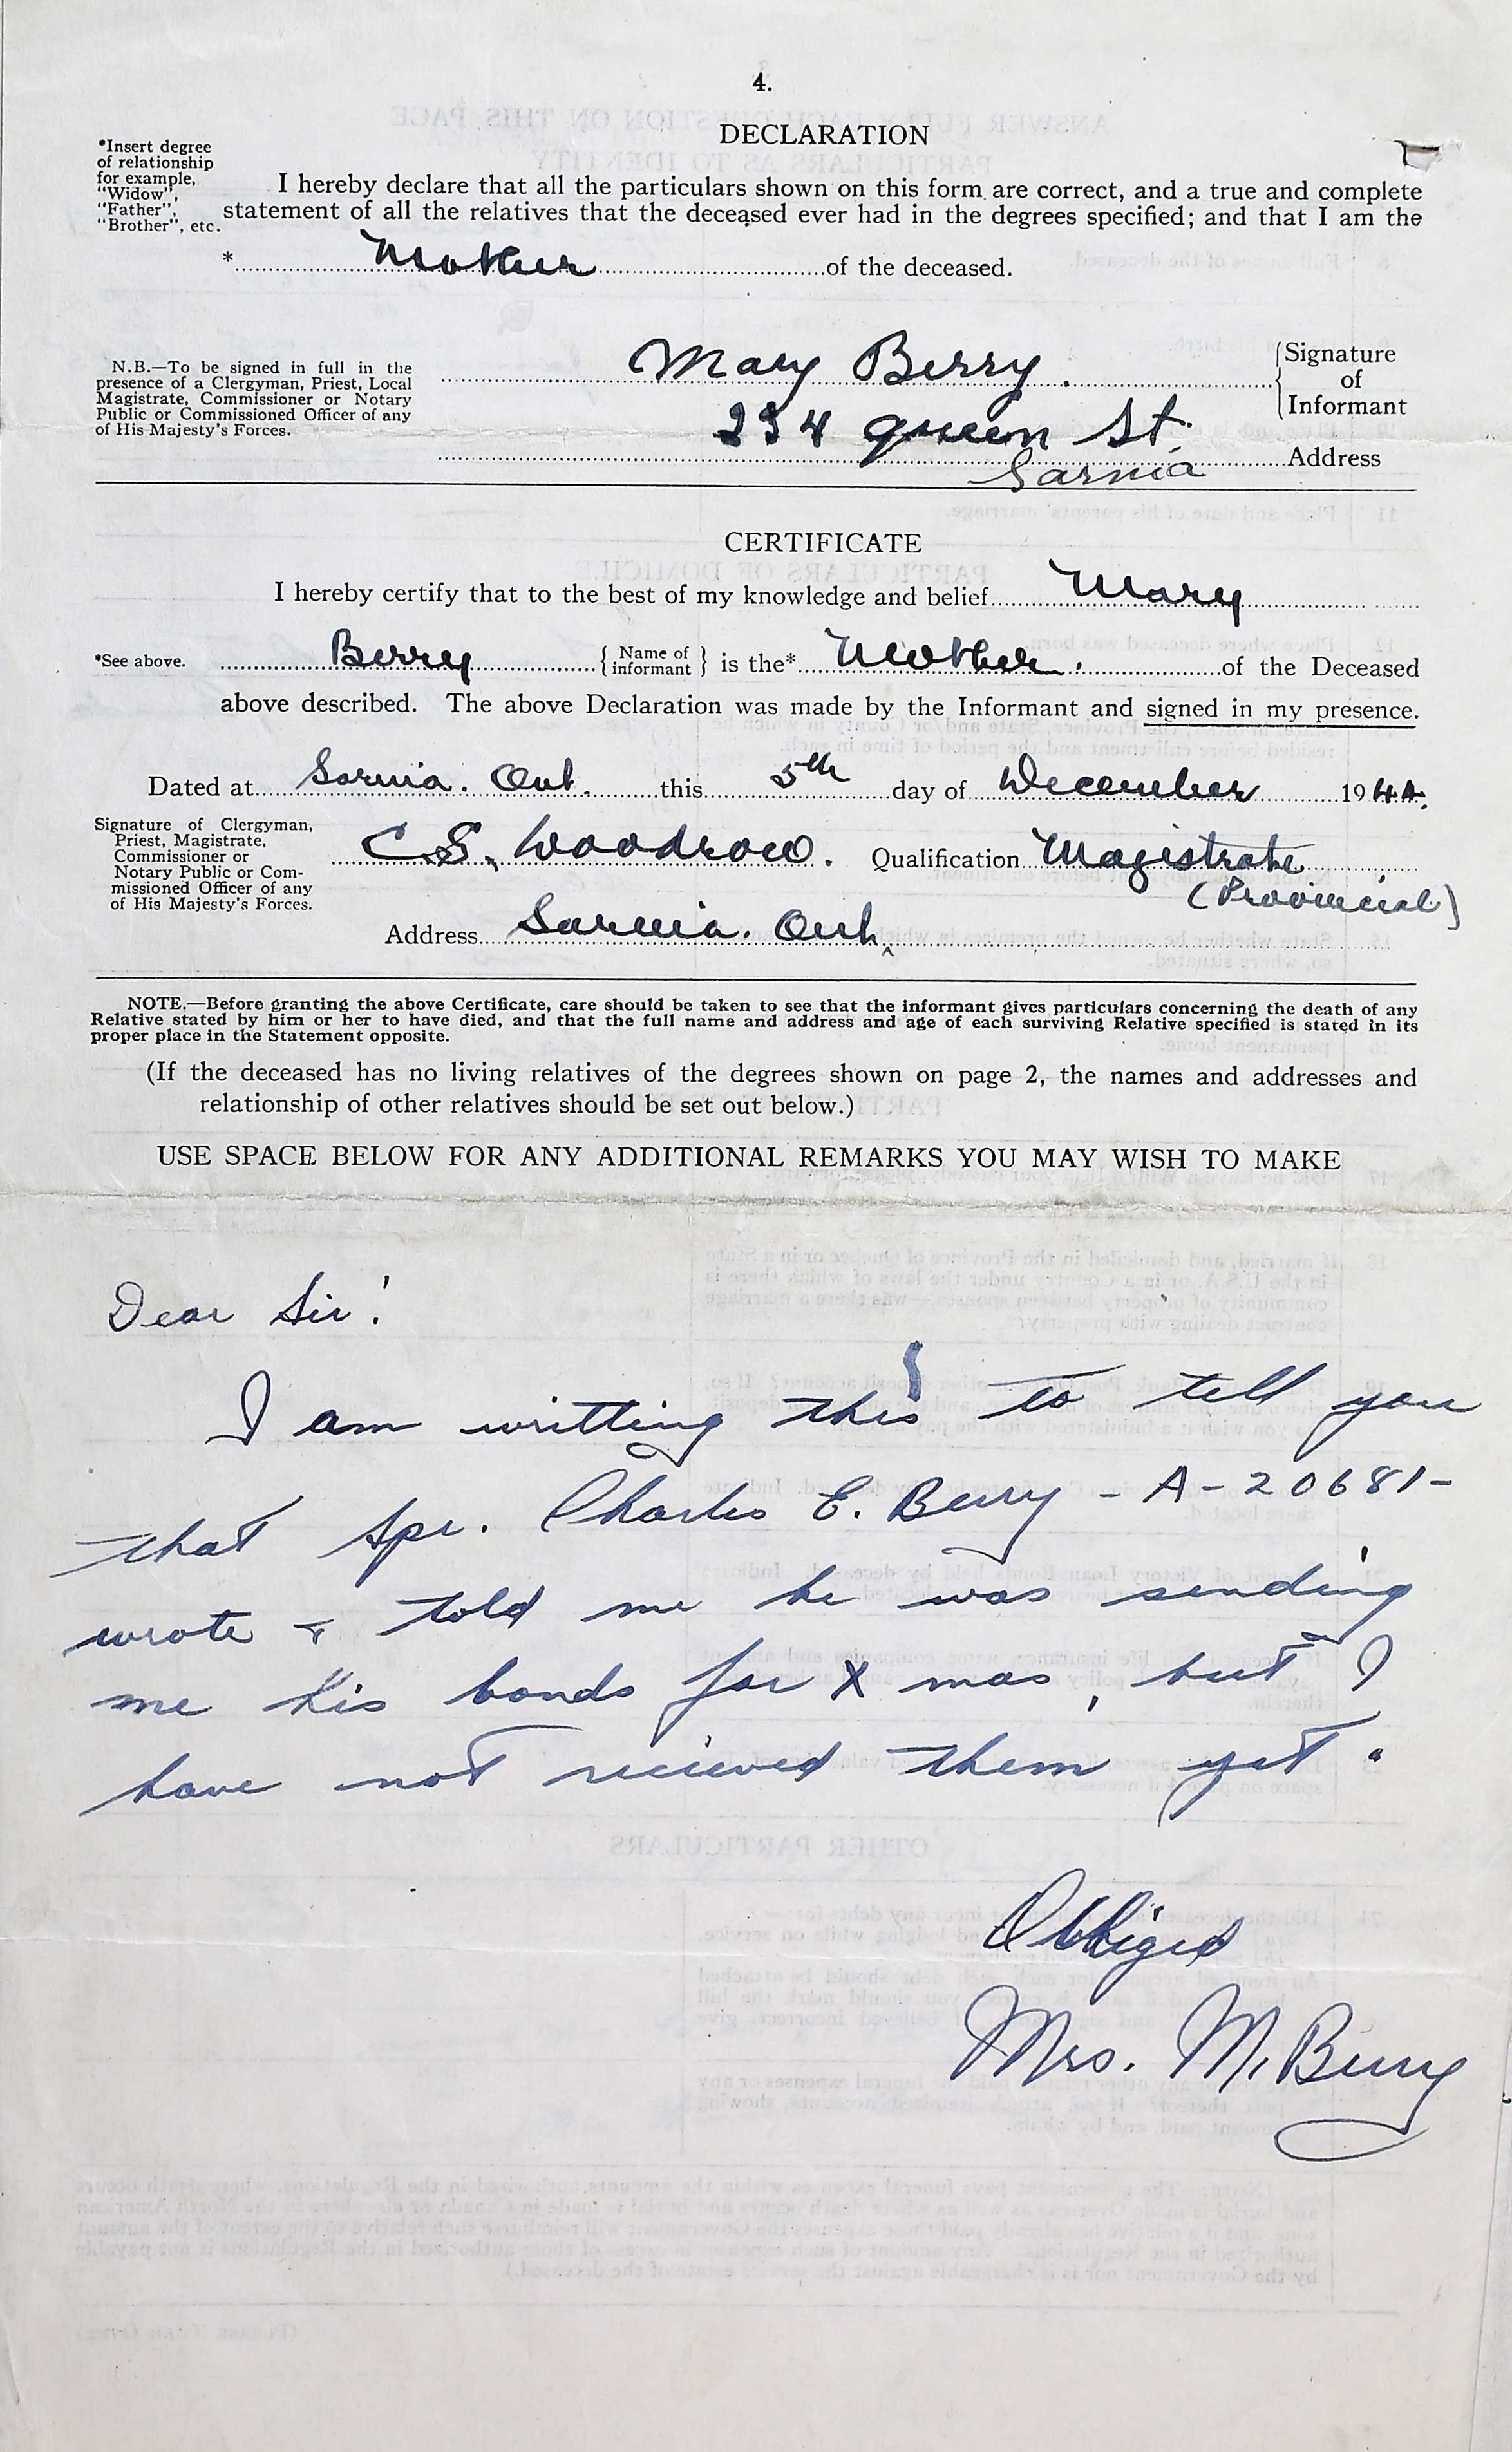 4.
DECLARATION
*Insert degree
of relationship
for example,
"Widow",
"Father",
"Brother", etc.
I hereby declare that all the particulars shown on this form are correct, and a true and complete
statement of all the relatives that the deceased ever had in the degrees specified; and that I am the
* Mother of the deceased.
N.B.—To be signed in full in the
presence of a Clergyman, Priest, Local
Magistrate, Commissioner or Notary
Public or Commissioned Officer of any
of His Majesty's Forces.
Mary Berry.
Signature
of
Informant
234 queen St.
Sarnia
Address
CERTIFICATE
I hereby certify that to the best of my knowledge and belief Mary
*See above. Berry { Name of informant } is the* Mother. of the Deceased
above described. The above Declaration was made by the Informant and signed in my presence.
Dated at Sarnia. Ont. this 5th day of December 1944.
Signature of Clergyman,
Priest, Magistrate,
Commissioner or
Notary Public or Com-
missioned Officer of any
of His Majesty's Forces.
C.S. Woodrow. Qualification Magistrate
(Provincial)
Address Sarnia. Ont.
NOTE.—Before granting the above Certificate, care should be taken to see that the informant gives particulars concerning the death of any
Relative stated by him or her to have died, and that the full name and address and age of each surviving Relative specified is stated in its
proper place in the Statement opposite.
(If the deceased has no living relatives of the degrees shown on page 2, the names and addresses and
relationship of other relatives should be set out below.)
USE SPACE BELOW FOR ANY ADDITIONAL REMARKS YOU MAY WISH TO MAKE
Dear Sir!
I am writting this to tell you
that Spr. Charles E. Berry - A-20681-
wrote & told me he was sending
me his bonds for X mas, but I
have not recieved them yet.
Obbliged
Mrs. M. Berry